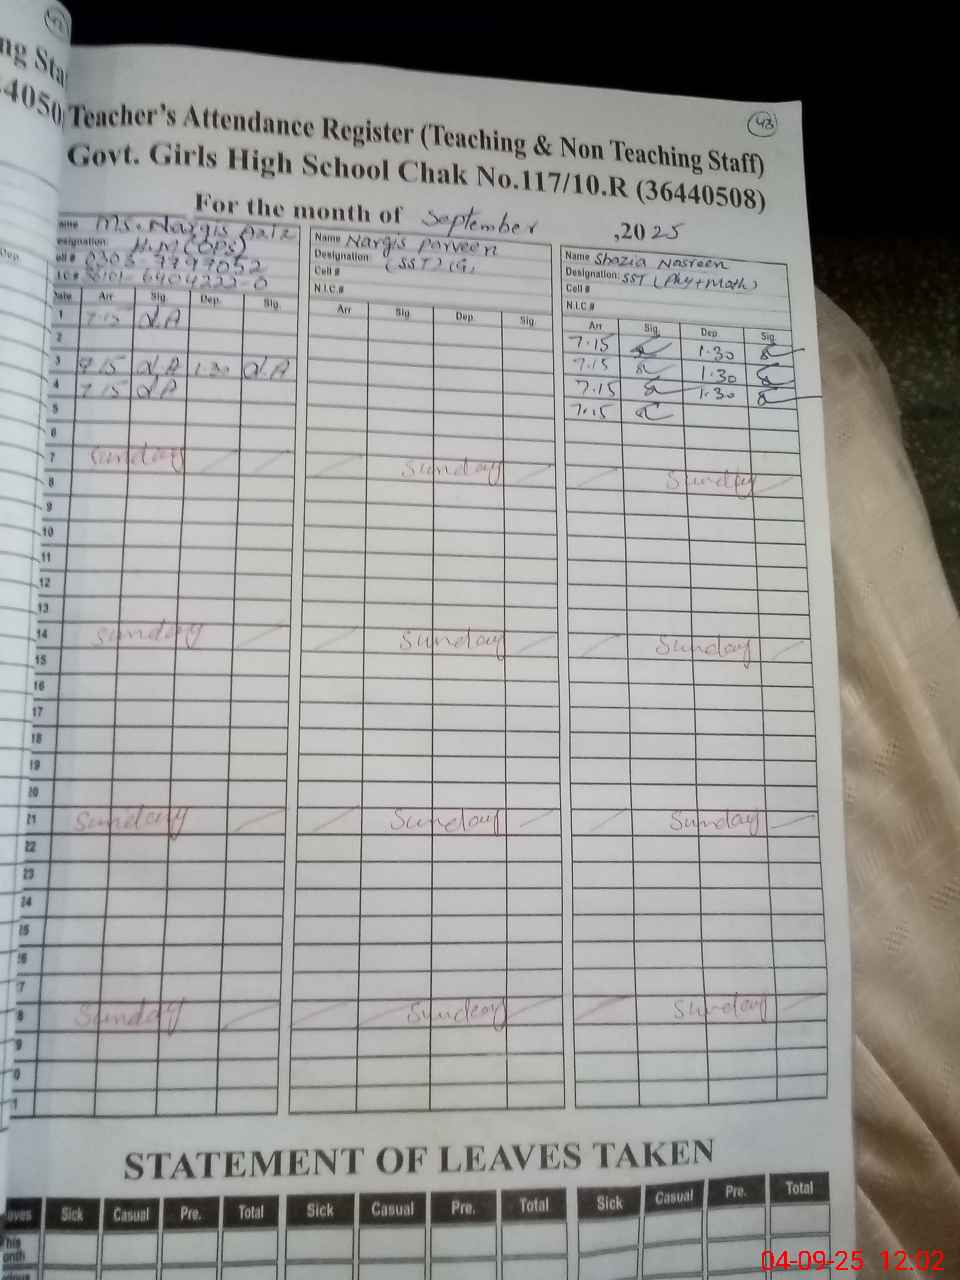 43
Teacher's Attendance Register (Teaching & Non Teaching Staff)
Govt. Girls High School Chak No.117/10.R (36440508)
For the month of September ,2025
Ms. Nargis Aziz
Designation: H.M (OPS)
0303 9799052
6404222-0
Date Arr Sig. Dep. Sig.
1 7.15
2
3 7.15 1.30
4 7.15
5
6
7 Sunday
8
9
10
11
12
13
14 Sunday
15
16
17
18
19
20
21 Sunday
22
23
24
25
Sunday
Name Nargis Parveen
Designation: (SST) (G)
Cell #
N.I.C.#
Arr Sig. Dep. Sig.
Sunday
Sunday
Sunday
Sunday
Name Shazia Nasreen
Designation: SST (Phy+Math)
Cell #
N.I.C.#
Arr Sig. Dep. Sig.
7.15 1.30
7.15 1.30
7.15 1.30
7.15
Sunday
Sunday
Sunday
Sunday
STATEMENT OF LEAVES TAKEN
Sick Casual Pre. Total Sick Casual Pre. Total Sick Casual Pre. Total
04-09-25 12:02